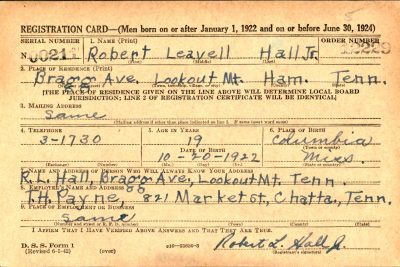 REGISTRATION CARD—(Men born on or after January 1, 1922 and on or before June 30, 1924)
SERIAL NUMBER 1. NAME (Print) ORDER NUMBER
N 0021 Robert Leavell Hall Jr.
2. PLACE OF RESIDENCE (Print)
Bragg Ave, Lookout Mt. Ham. Tenn.
[THE PLACE OF RESIDENCE GIVEN ON THE LINE ABOVE WILL DETERMINE LOCAL BOARD
JURISDICTION; LINE 2 OF REGISTRATION CERTIFICATE WILL BE IDENTICAL]
3. MAILING ADDRESS
Same
[Mailing address if other than place indicated on line 2. If same insert word same]
4. TELEPHONE 5. AGE IN YEARS 6. PLACE OF BIRTH
3-1730 19 Columbia
DATE OF BIRTH
10-20-1922 Miss.
7. NAME AND ADDRESS OF PERSON WHO WILL ALWAYS KNOW YOUR ADDRESS
R.L. Hall, Bragg Ave, Lookout Mt. Tenn.
8. EMPLOYER'S NAME AND ADDRESS
T.H. Payne, 821 Market St, Chatta, Tenn.
9. PLACE OF EMPLOYMENT OR BUSINESS
Same
I AFFIRM THAT I HAVE VERIFIED ABOVE ANSWERS AND THAT THEY ARE TRUE.
D. S. S. Form 1
(Revised 6-1-42)
Robert L. Hall Jr.